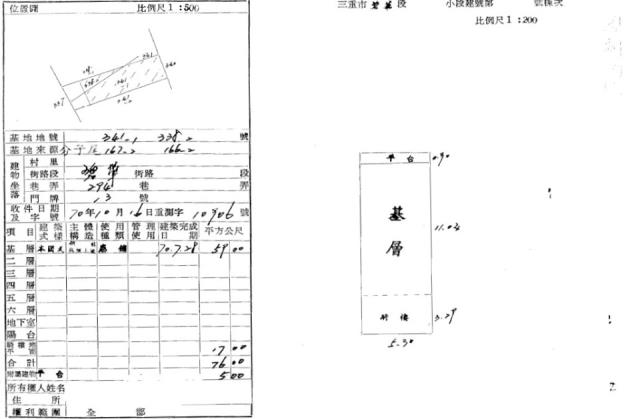 位置圖 比例尺 1:500
341
341
基地地號 341-1 338-2 號
基地來源 分子尾 167-2 166-2
建物坐落 村里
街路段 碧華 街路 段
巷弄 294 巷 弄
門牌 13 號
收件日期及字號 70年10月16日重測字 10906 號
項目 建築式樣 主體構造 使用種類 管理使用 建築完成日期 平方公尺
基層 本國式 店鋪 70.7.28 59.00
二層
三層
四層
五層
六層
地下室
陽台
騎樓地平面 17.00
合計 76.00
附屬建物 平台 5.00
所有權人姓名
住所
權利範圍 全部
三重市 碧華 段 小段建號第 號棟次
比例尺 1:200
平台 0.90
基層 11.02
騎樓 3.29
5.30